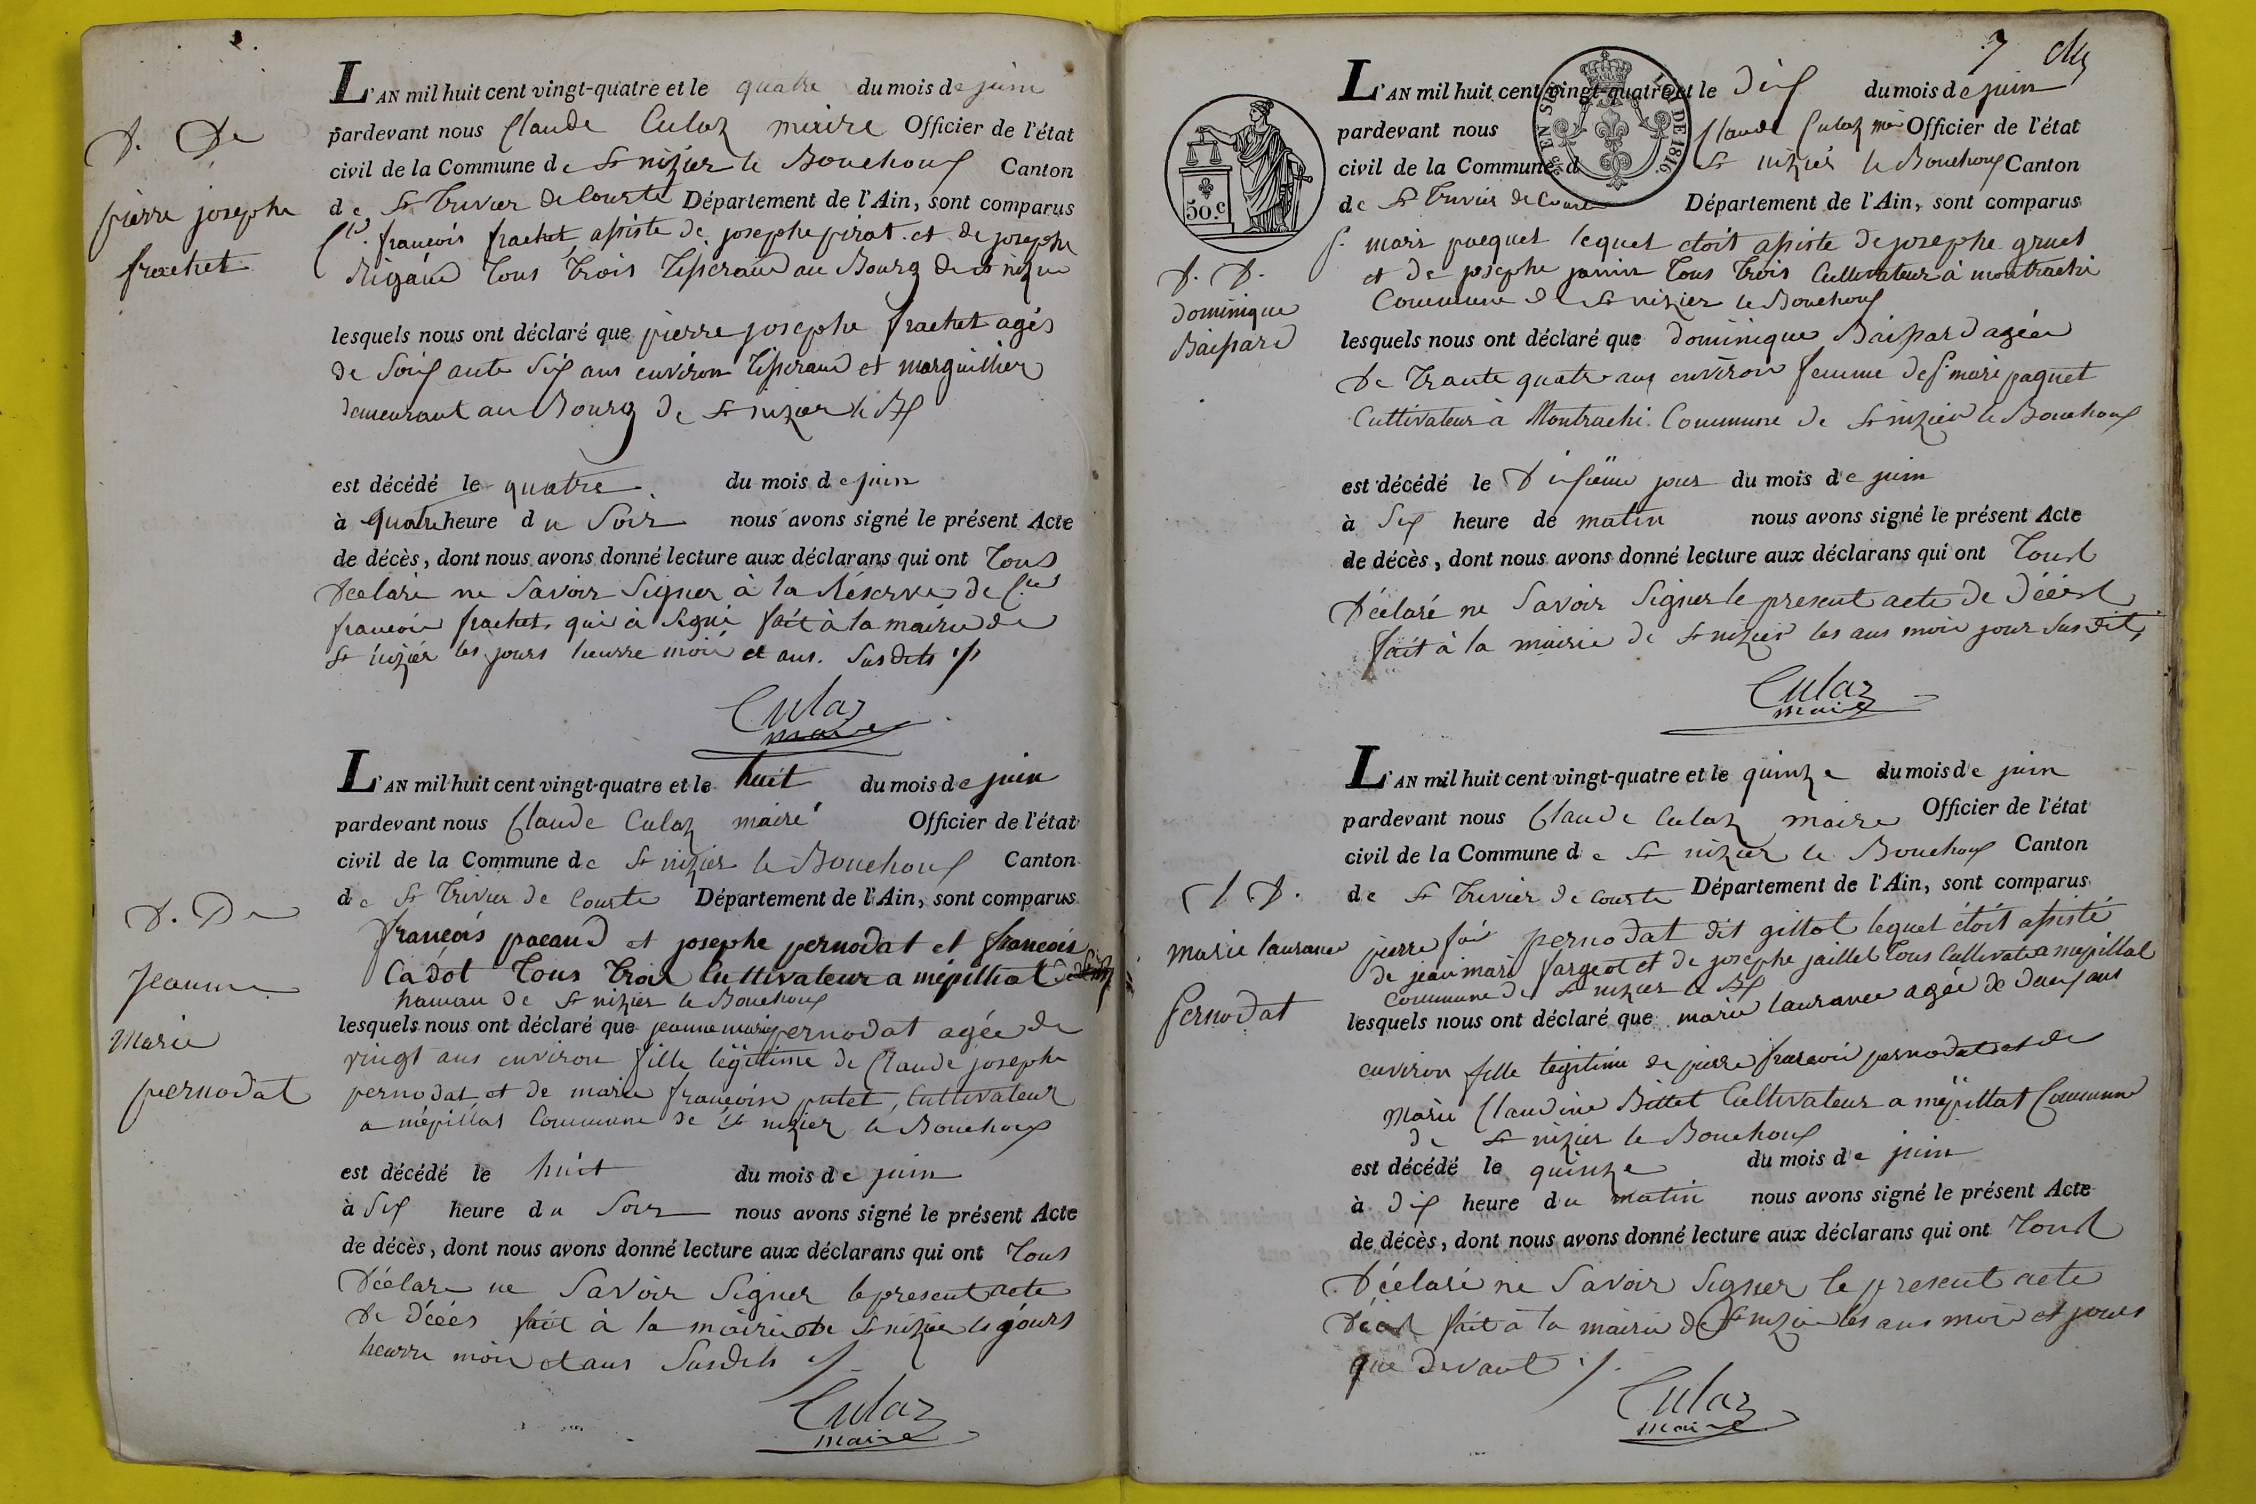 D. De
pierre josephe
frachet
L'AN mil huit cent vingt-quatre et le quatre du mois de juin
pardevant nous Claude Culaz maire Officier de l'état
civil de la Commune de St nizier le Bouchoux Canton
de St Trivier de Courte Département de l'Ain, sont comparus
françois frachet assiste de josephe pirat et de josephe
Rigaud tous trois tisserand au Bourg de St nizier
lesquels nous ont déclaré que pierre josephe frachet agés
de soixante six ans environ tisserand et marguillier
demeurant au Bourg de St nizier le Bx
est décédé le quatre du mois de juin
à quatre heure du soir nous avons signé le présent Acte
de décès, dont nous avons donné lecture aux déclarans qui ont tous
declaré ne savoir signer à la réserve de
francois frachet qui à signé fait à la mairie de
St nizier les jours heurre mois et ans. susdits
Culaz
maire
D. De
jeanne
marie
pernodat
L'AN mil huit cent vingt-quatre et le huit du mois de juin
pardevant nous Claude Culaz maire Officier de l'état
civil de la Commune de St nizier le Bouchoux Canton
de St Trivier de Courte Département de l'Ain, sont comparus
françois pacaud et josephe pernodat et francois
Cadot tous trois Cultivateur a mépillat
hamau de St nizier le Bouchoux
lesquels nous ont déclaré que jeanne marie pernodat agée de
vingt ans environ fille légitime de Claude josephe
pernodat et de marie françoise putet, Cultivateur
a mépillat Commune de St nizier le Bouchoux
est décédé le huit du mois de juin
à six heure du soir nous avons signé le présent Acte
de décès, dont nous avons donné lecture aux déclarans qui ont tous
déclare ne savoir signer le present acte
de décés fait à la mairie de St nizier les jours
heurre mois et ans susdits
Culaz
maire
7
50.c
LOI DE 1816.
D. D.
dominique
Baissard
L'AN mil huit cent vingt-quatre et le dix du mois de juin
pardevant nous Claude Culaz mre Officier de l'état
civil de la Commune d St nizier le Bouchoux Canton
de St Trivier de Courte Département de l'Ain, sont comparus
marie pacquet lequel etoit assiste de josephe gruet
et de josephe janin tous trois Cultivateur à montrachi
Commune de St nizier le Bouchoux
lesquels nous ont déclaré que dominique Baissard agée
de trante quatre ans environ femme de marie paquet
Cultivateur à Montrachi Commune de St nizier le Bouchoux
est décédé le dixieme jour du mois de juin
à six heure de matin nous avons signé le présent Acte
de décès, dont nous avons donné lecture aux déclarans qui ont tous
déclaré ne savoir signer le present acte de décés
fait à la mairie de St nizier les ans mois jour susdits
Culaz
maire
D.
marie laurance
pernodat
L'AN mil huit cent vingt-quatre et le quinze du mois de juin
pardevant nous Claude Culaz maire Officier de l'état
civil de la Commune de St nizier le Bouchoux Canton
de St Trivier de Courte Département de l'Ain, sont comparus
pierre foi pernodat dit gillot lequel étoit assisté
de jean marie fargeot et de josephe jaillet tous Cultivat a mepillat
Commune de St nizier le Bx
lesquels nous ont déclaré que marie laurance agée de deux ans
environ fille legitime de pierre francois pernodat et de
marie Claudine Billet Cultivateur a mépillat Commune
de St nizier le Bouchoux
est décédé le quinze du mois de juin
à dix heure du matin nous avons signé le présent Acte
de décès, dont nous avons donné lecture aux déclarans qui ont tous
déclaré ne savoir signer le present acte
décés fait à la mairie de St nizier les ans mois et jours
que devant
Culaz
maire